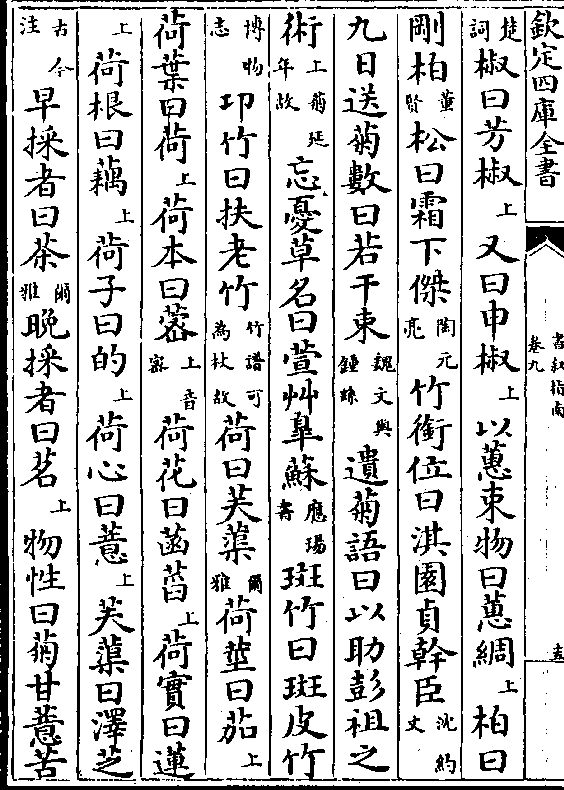 欽定四庫全書
書叙指南
卷九
楚詞椒曰芳椒上又曰申椒上以蕙束物曰蕙綢上柏曰
剛柏董賢松曰霜下傑陶元亮竹銜位曰淇園貞幹臣沈約文
九日送菊數曰若干束魏文與鍾繇遺菊語曰以助彭祖之
術上菊延年故忘憂草名曰萱艸臯蘇應瑒書斑竹曰斑皮竹
博物志卭竹曰扶老竹竹譜可為杖故荷曰芙蕖爾雅荷莖曰茄上
荷葉曰荷上荷本曰蔤上音密荷花曰菡萏上荷實曰蓮
上荷根曰藕上荷子曰的上荷心曰薏上芙蕖曰澤芝
古今注早採者曰茶爾雅晚採者曰茗上物性曰菊甘薏苦